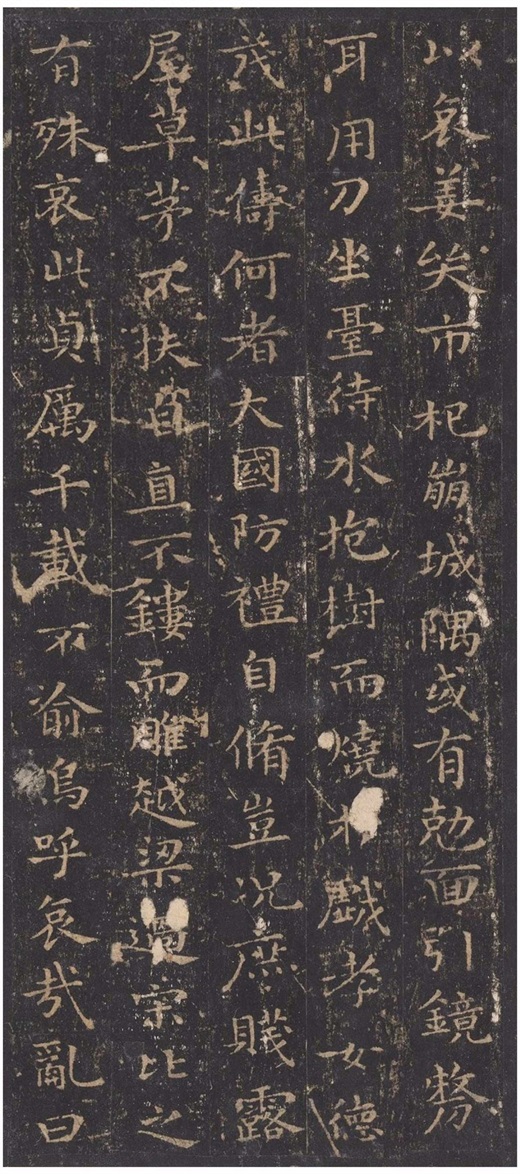 以哀姜哭市杞崩城隅或有尅面引鏡剺
耳用刀坐臺待水抱樹而燒於戲孝女德
茂此儔何者大國防禮自脩豈況庶賤露
屋草茅不扶自直不鏤而雕越梁過宋比之
有殊哀此貞厲千載不渝嗚呼哀哉亂曰